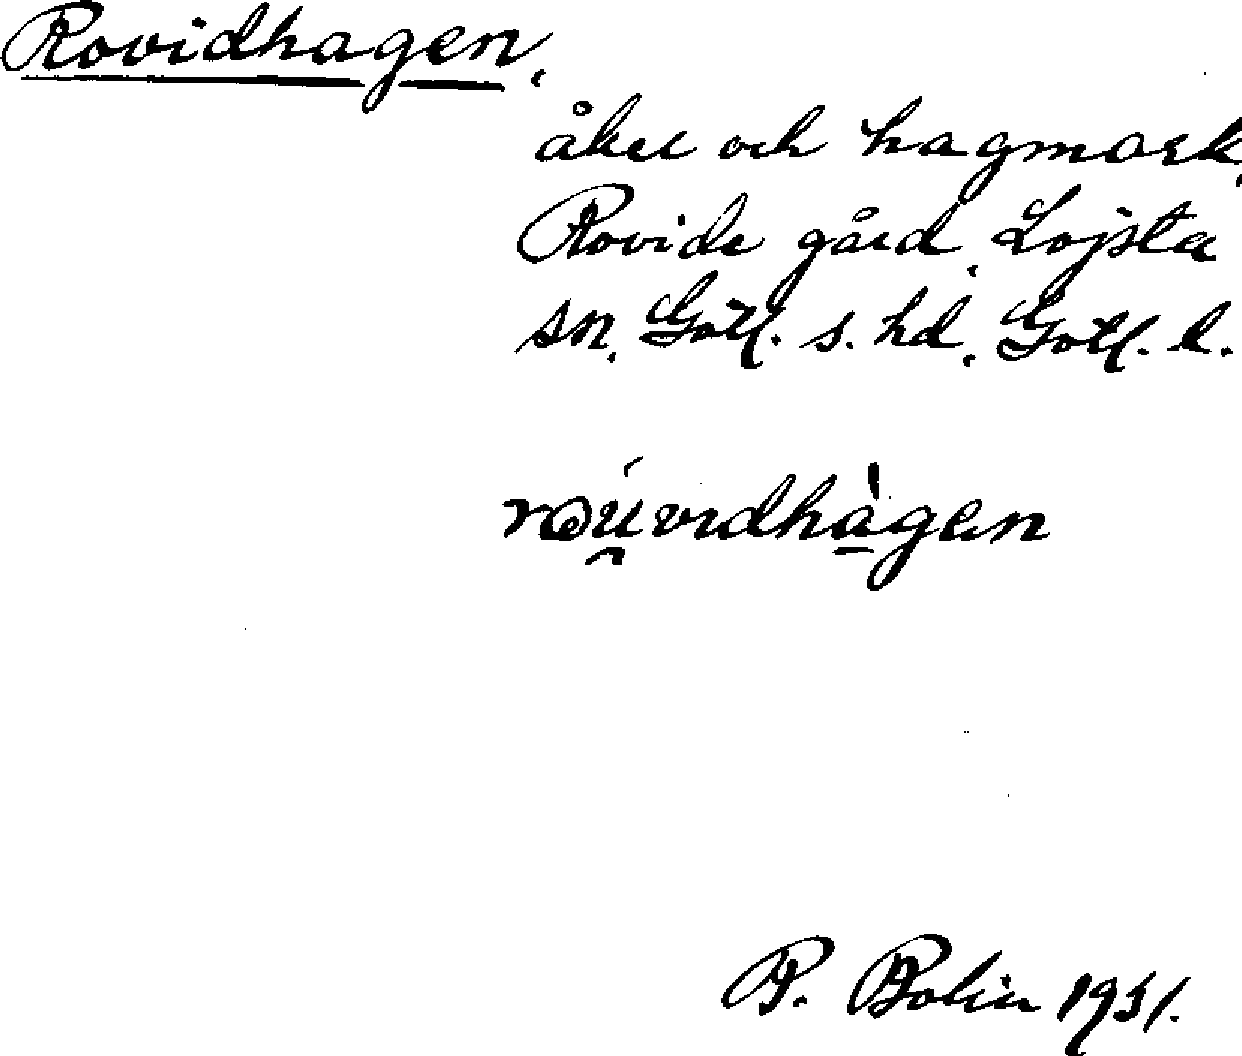 Rovidhagen,
åker och hagmark,
Rovide gård, Lojsta
sn, Gotl. s. hd, Gotl. l.
P. Bolin 1931.